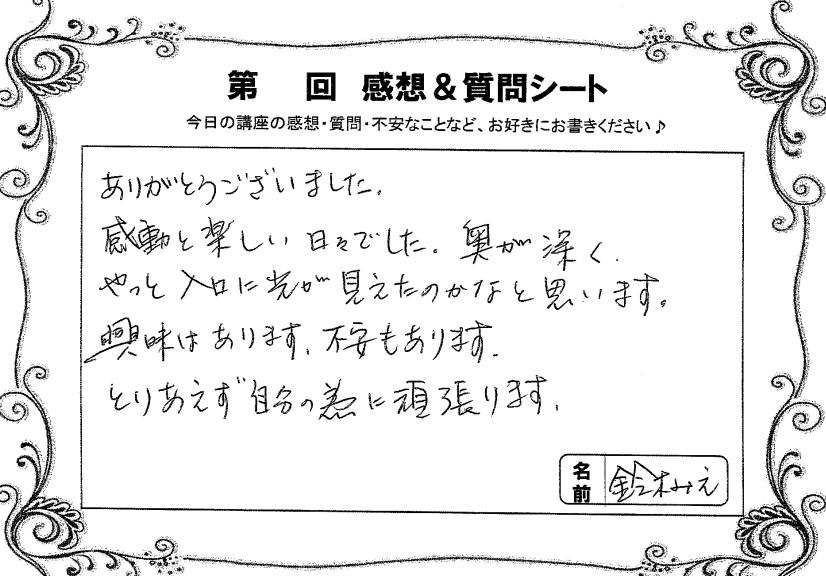 第　回 感想&質問シート
今日の講座の感想・質問・不安なことなど、お好きにお書きください♪
ありがとうございました。
感動と楽しい日々でした。奥が深く、
やっと入口に光が見えたのかなと思います。
興味はあります、不安もあります。
とりあえず自分の為に頑張ります。
名前 鈴木みえ